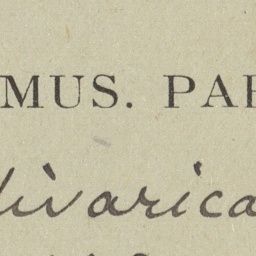 MUS. PAR
divarica